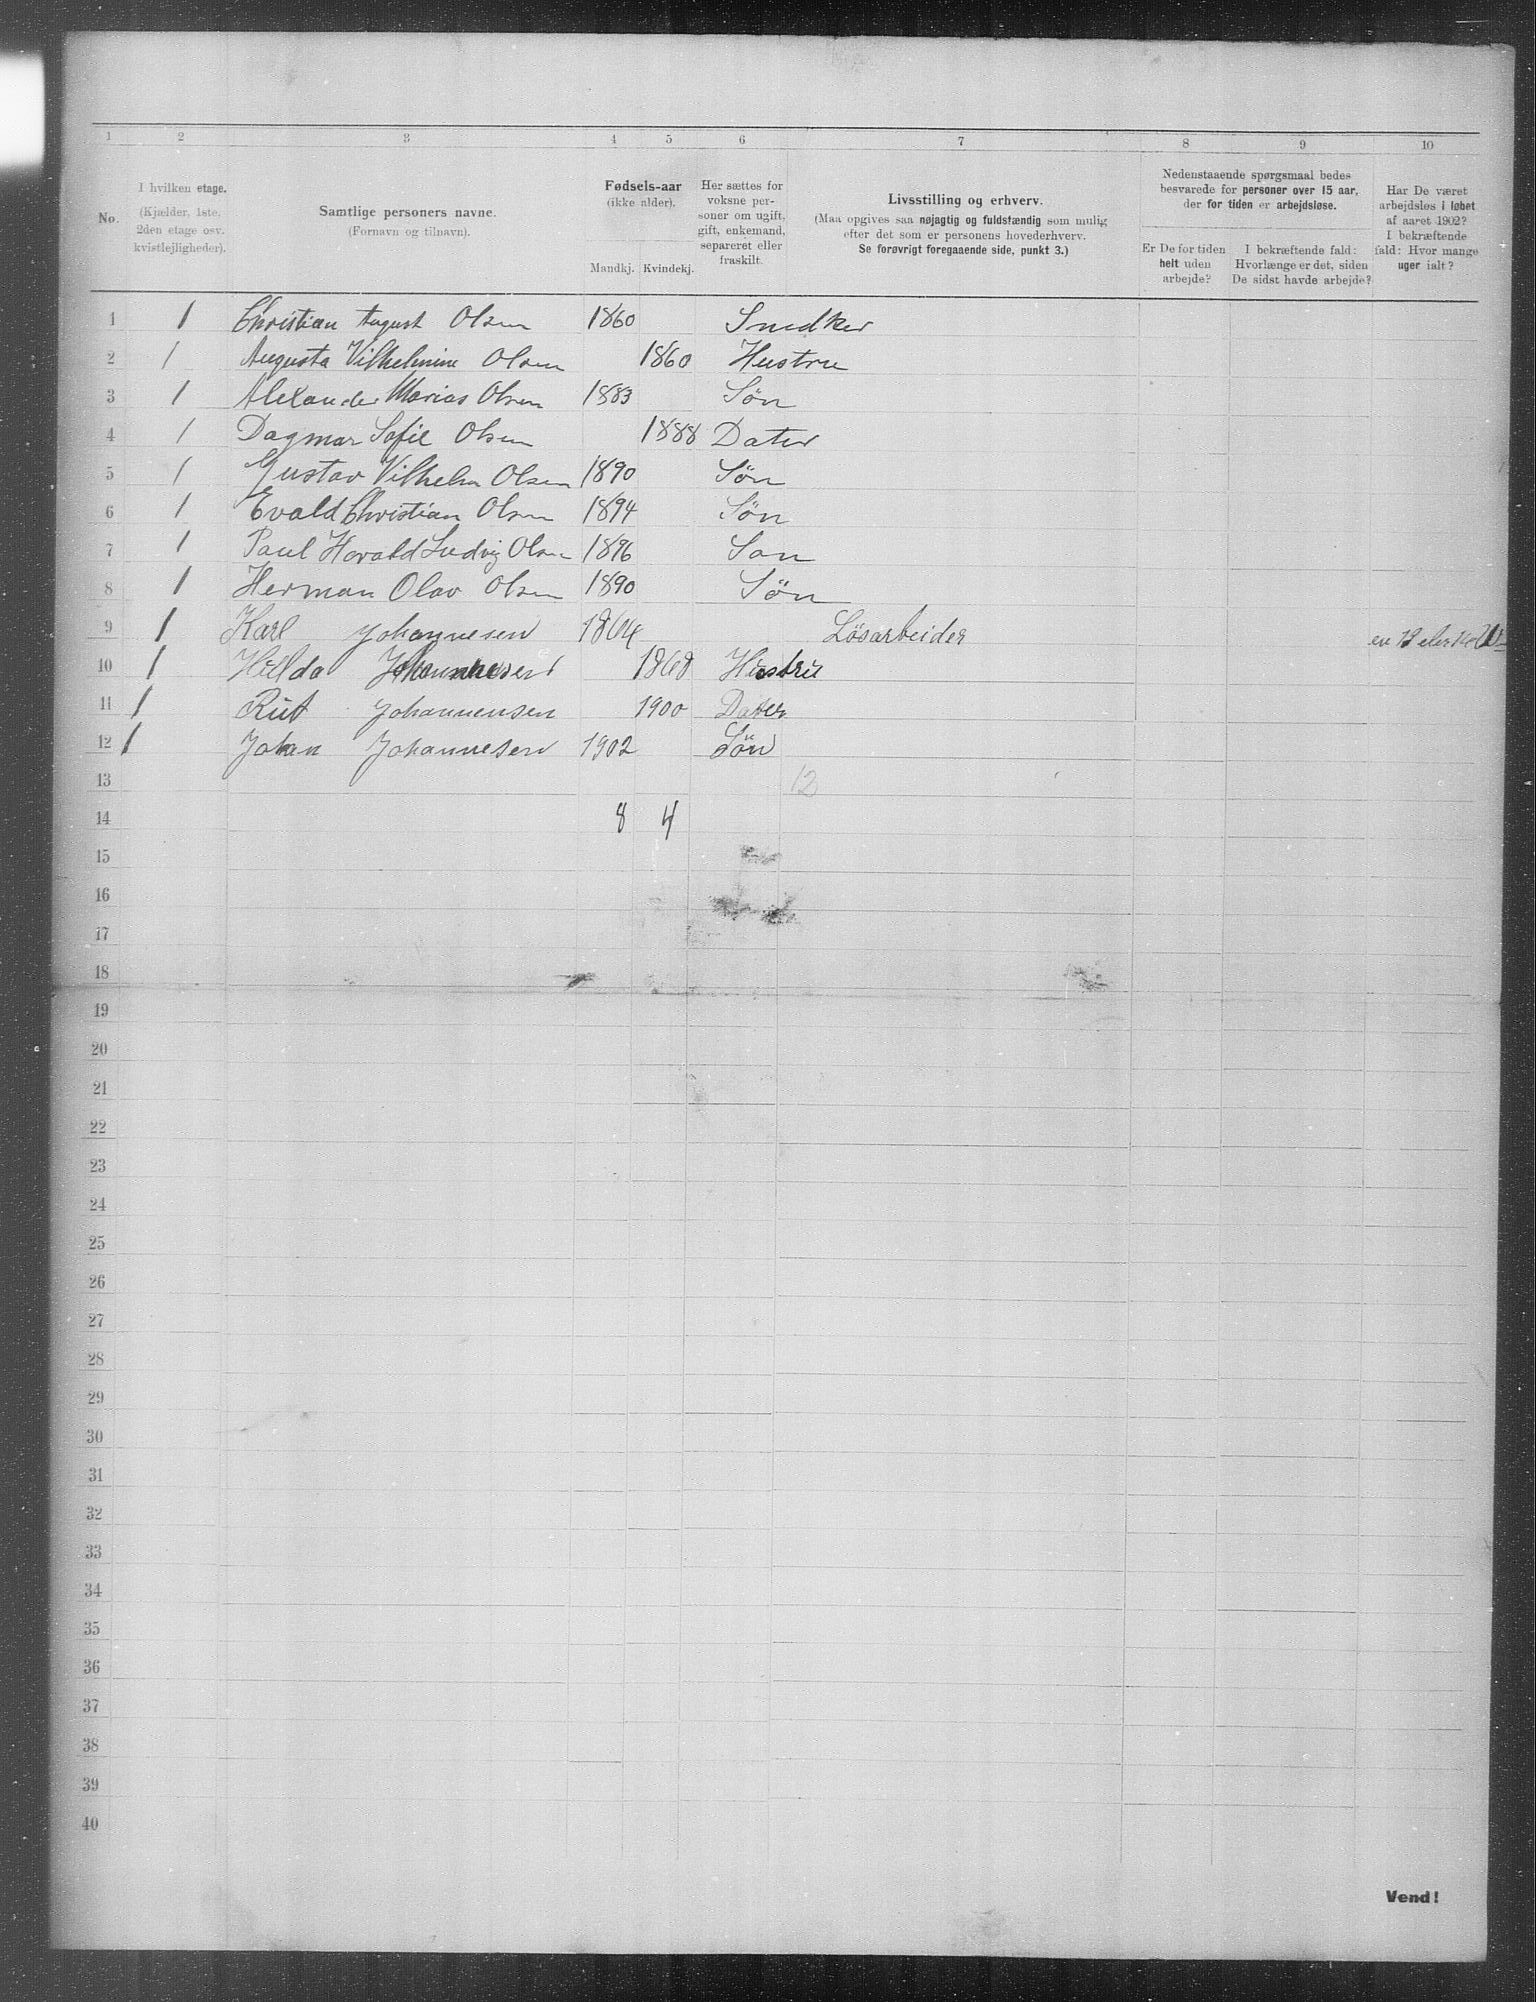 1 2 3 4 5 6 7 8 9 10
No.
I hvilken etage.
(Kjælder, 1ste,
2den etage osv.
kvistlejligheder).
Samtlige personers navne.
(Fornavn og tilnavn).
Fødsels-aar
(ikke alder).
Mandkj. Kvindekj.
Her sættes for
voksne per-
soner om ugift,
gift, enkemand,
separeret eller
fraskilt.
Livsstilling og erhverv.
(Maa opgives saa nøjagtig og fuldstændig som mulig
efter det som er personens hovederhverv.
Se forøvrigt foregaaende side, punkt 3.)
Nedenstaaende spørgsmaal bedes
besvarede for personer over 15 aar,
der for tiden er arbejdsløse.
Er De for tiden
helt uden
arbejde?
I bekræftende fald:
Hvorlænge er det, siden
De sidst havde arbejde?
Har De været
arbejdsløs i løbet
af aaret 1902?
I bekræftende
fald: Hvor mange
uger ialt?
1 1 Christian August Olsen 1860 Snedker
2 1 Augusta Vilhelmine Olsen 1860 Hustru
3 1 Alexander Marias Olsen 1883 Søn
4 1 Dagmar Sofie Olsen 1888 Dater
5 1 Gustav Vilhelm Olsen 1890 Søn
6 1 Evald Christian Olsen 1894 Søn
7 1 Paul Harald Ludvig Olsen 1896 Søn
8 1 Herman Olav Olsen 1890 Sön
9 1 Karl Johannesen 1864 Lösarbeider en
10 1 Hilda Johannesen 1868 Hustru
11 1 Rut Johannensen 1900 Dater
12 1 Johan Johannesen 1902 Sön
13 12
14 8 4
15
16
17
18
19
20
21
22
23
24
25
26
27
28
29
30
31
32
33
34
35
36
37
38
39
40
Vend!